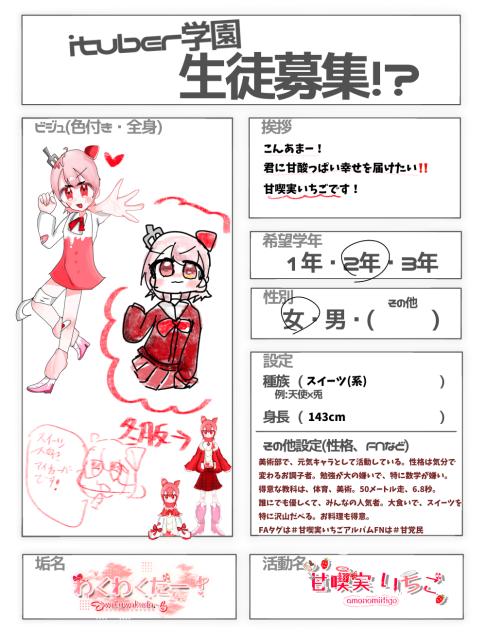 ituber学園
生徒募集!?
ビジュ(色付き・全身)
冬服→
スイーツ
大好き
です!
挨拶
こんあまー！
君に甘酸っぱい幸せを届けたい‼
甘喫実いちごです！
希望学年
1年・2年・3年
性別
その他
女・男・( )
設定
種族 (スイーツ(系) )
例:天使×兎
身長 ( 143cm )
その他設定(性格、FNなど)
美術部で、元気キャラとして活動している。性格は気分で
変わるお調子者。勉強が大の嫌いで、特に数学が嫌い。
得意な教科は、体育、美術。50メートル走、6.8秒。
誰にでも優しくて、みんなの人気者。大食いで、スイーツを
特に沢山だべる。お料理も得意。
FAタグは#甘喫実いちごアルバムFNは#甘党民
垢名
わくわくだー!
活動名
甘喫実いちご
amanomiitigo